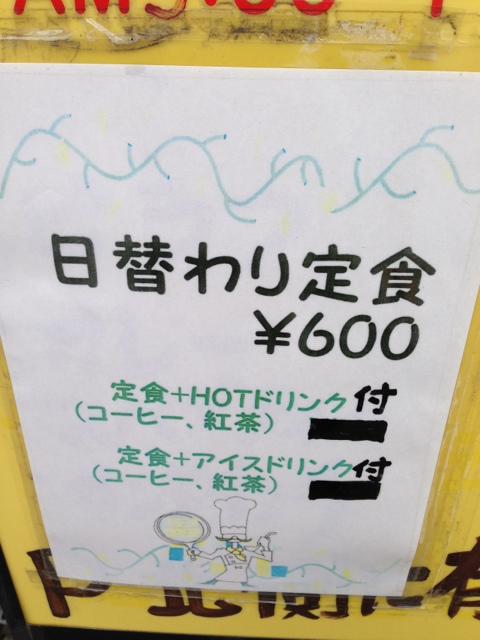 日替わり定食
¥600
定食+HOTドリンク付
(コーヒー、紅茶)
定食+アイスドリンク付
(コーヒー、紅茶)